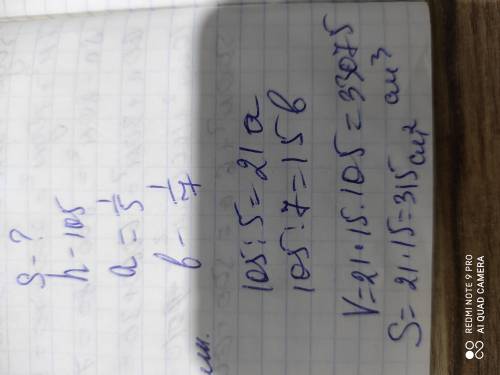 S=?
h-105
a = 1/5
b - 1/7
см.
105:5=21 a
105:7=15 b
V=21·15·105=33075 см³
S=21·15=315 см²
REDMI NOTE 9 PRO
AI QUAD CAMERA